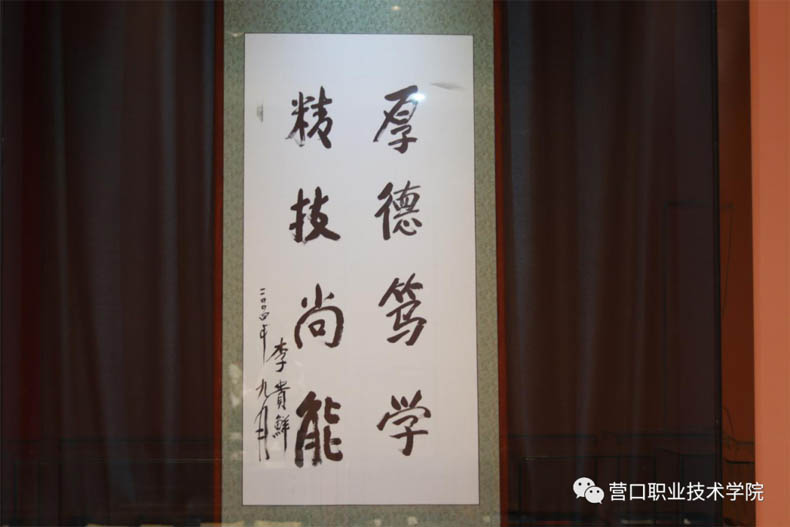 厚德笃学
精技尚能
李贵鲜
二〇〇四年九月
营口职业技术学院